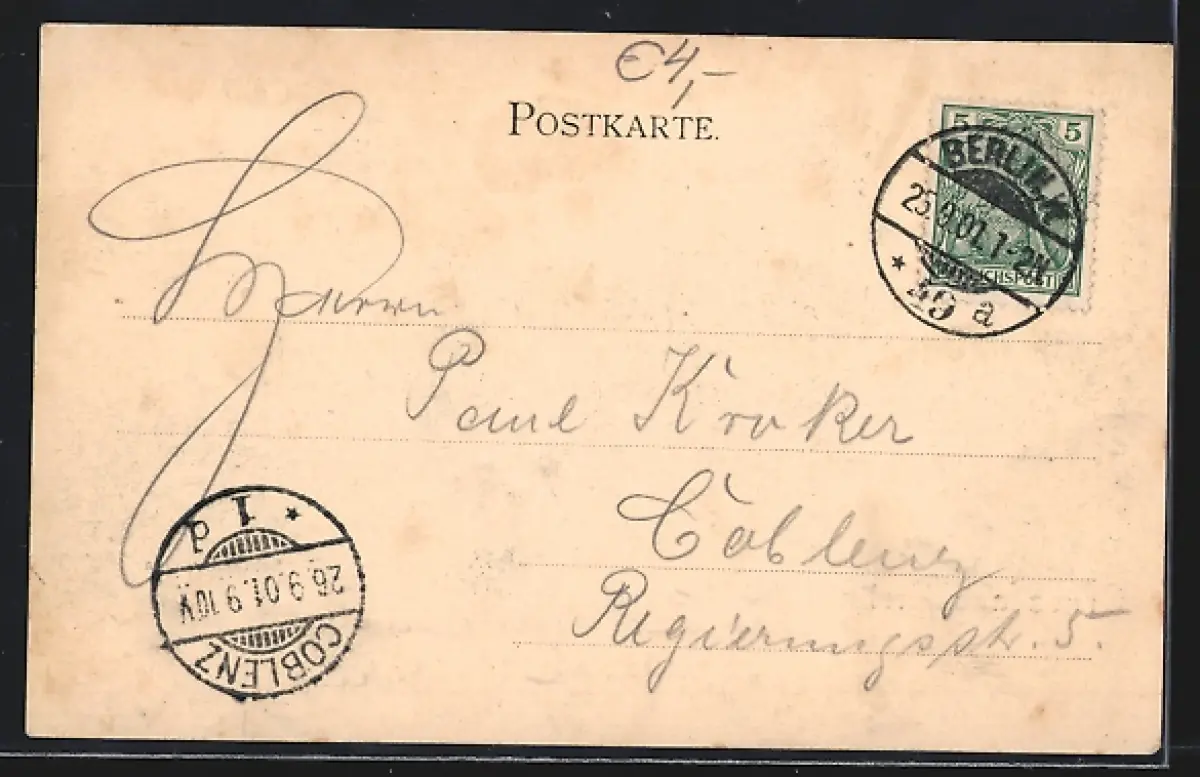 €4,-
POSTKARTE.
5 5
BERLIN, N.
25.9.01. 1-2N.
* 39 a
REICHSPOST
Herrn
Paul Kroker
Coblenz
Regierungsstr. 5.
* 1 d
26.9.01. 9.10V.
COBLENZ